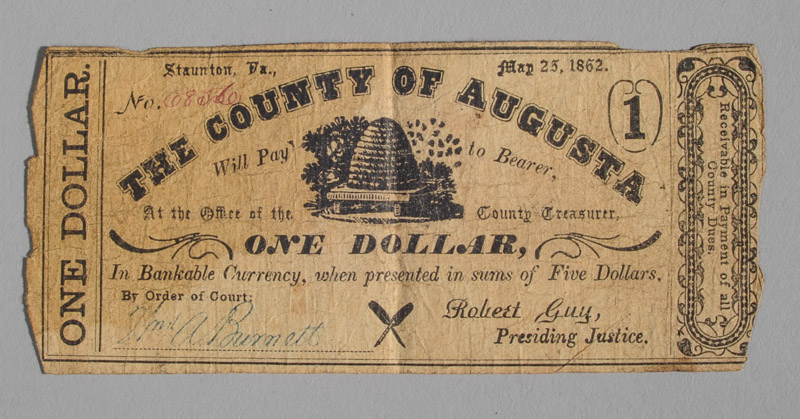 ONE DOLLAR.
Staunton, Va., May 23, 1862.
No.
THE COUNTY OF AUGUSTA
1
Will Pay to Bearer,
At the Office of the County Treasurer,
ONE DOLLAR,
In Bankable Currency, when presented in sums of Five Dollars.
By Order of Court:
Wm A. Burnett
Robert Guy,
Presiding Justice.
Receivable in Payment of all
County Dues.